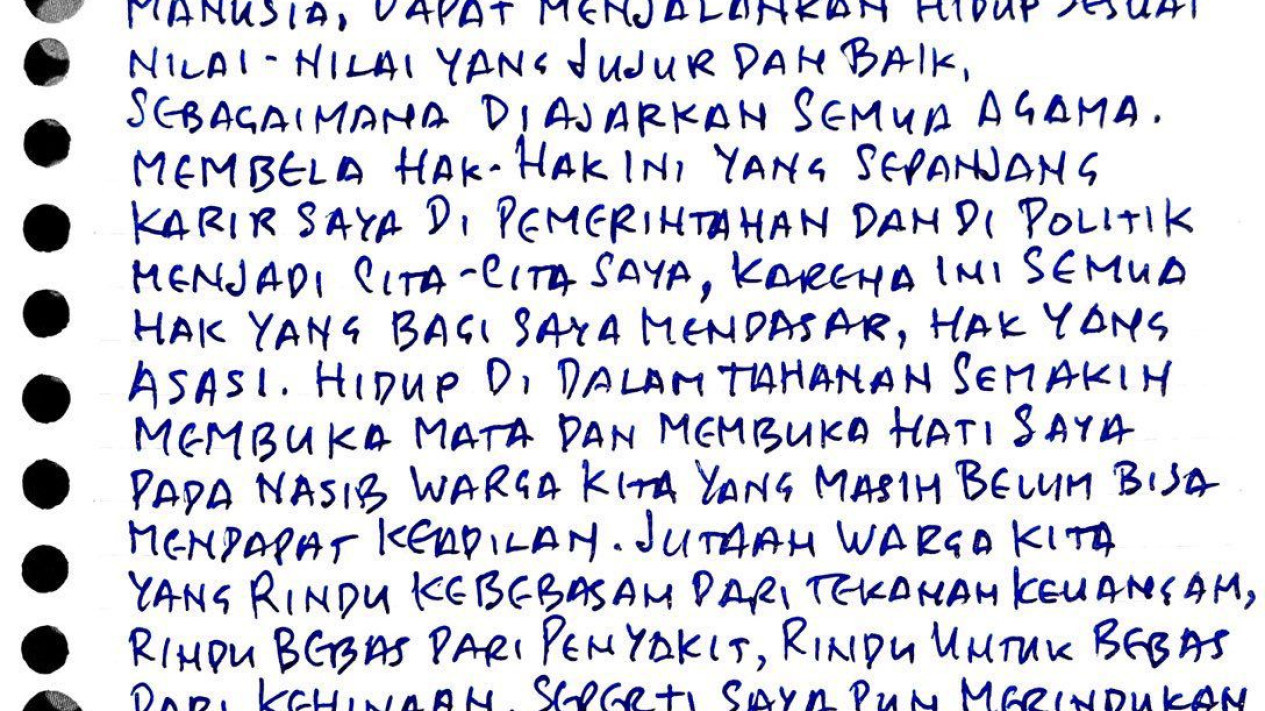 MANUSIA, DAPAT MENJALANKAN HIDUP SESUAI
NILAI-NILAI YANG JUJUR DAN BAIK,
SEBAGAIMANA DIAJARKAN SEMUA AGAMA.
MEMBELA HAK-HAK INI YANG SEPANJANG
KARIR SAYA DI PEMERINTAHAN DAN DI POLITIK
MENJADI CITA-CITA SAYA, KARENA INI SEMUA
HAK YANG BAGI SAYA MENDASAR, HAK YANG
ASASI. HIDUP DI DALAM TAHANAN SEMAKIN
MEMBUKA MATA DAN MEMBUKA HATI SAYA
PADA NASIB WARGA KITA YANG MASIH BELUM BISA
MENDAPAT KEADILAN. JUTAAN WARGA KITA
YANG RINDU KEBEBASAN DARI TEKANAN KEUANGAN,
RINDU BEBAS DARI PENYAKIT, RINDU UNTUK BEBAS
DARI KEHINAAN. SEPERTI SAYA PUN MERINDUKAN